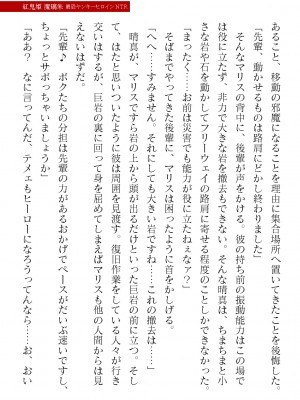 紅鬼姫 魔璃珠 最強ヤンキーヒロインNTR
あること、移動の邪魔になることを理由に集合場所へ置いてきたことを後悔した。
「先輩、動かせるものは路肩にどかし終わりました」
そんなマリスの背中に、後輩が声をかける。彼の持ち前の振動能力はこの場で
は役に立たず、非力で大きな岩を撤去もできない。そんな晴真は、ちまちまと小
さな岩や石を動かしてフリーウェイの路肩に寄せる程度のことしかできなかった。
「まったく…お前は災害でも能力が役に立たねぇなァ？」
そばまでやってきた後輩に、マリスは困ったように首をかしげる。
「へへ……すみません。それにしても大きい岩ですね……これの撤去は……」
晴真が、マリスですら岩の上から頭が出るだけといった巨岩の前に立つ。そし
て、はたと思いついたように彼は周囲を見渡す。復旧作業をしている人々が行き
交いはするが、巨岩の裏に回って身を屈めてしまえばマリスも他の人間からは見
えないはずだ。
「先輩♪　ボクたちの分担は先輩の力があるおかげでペースがだいぶ速いですし、
ちょっとサボっちゃいましょうか」
「ああ？　なに言ってんだ、テメェもヒーローになろうってんなら……お、おい